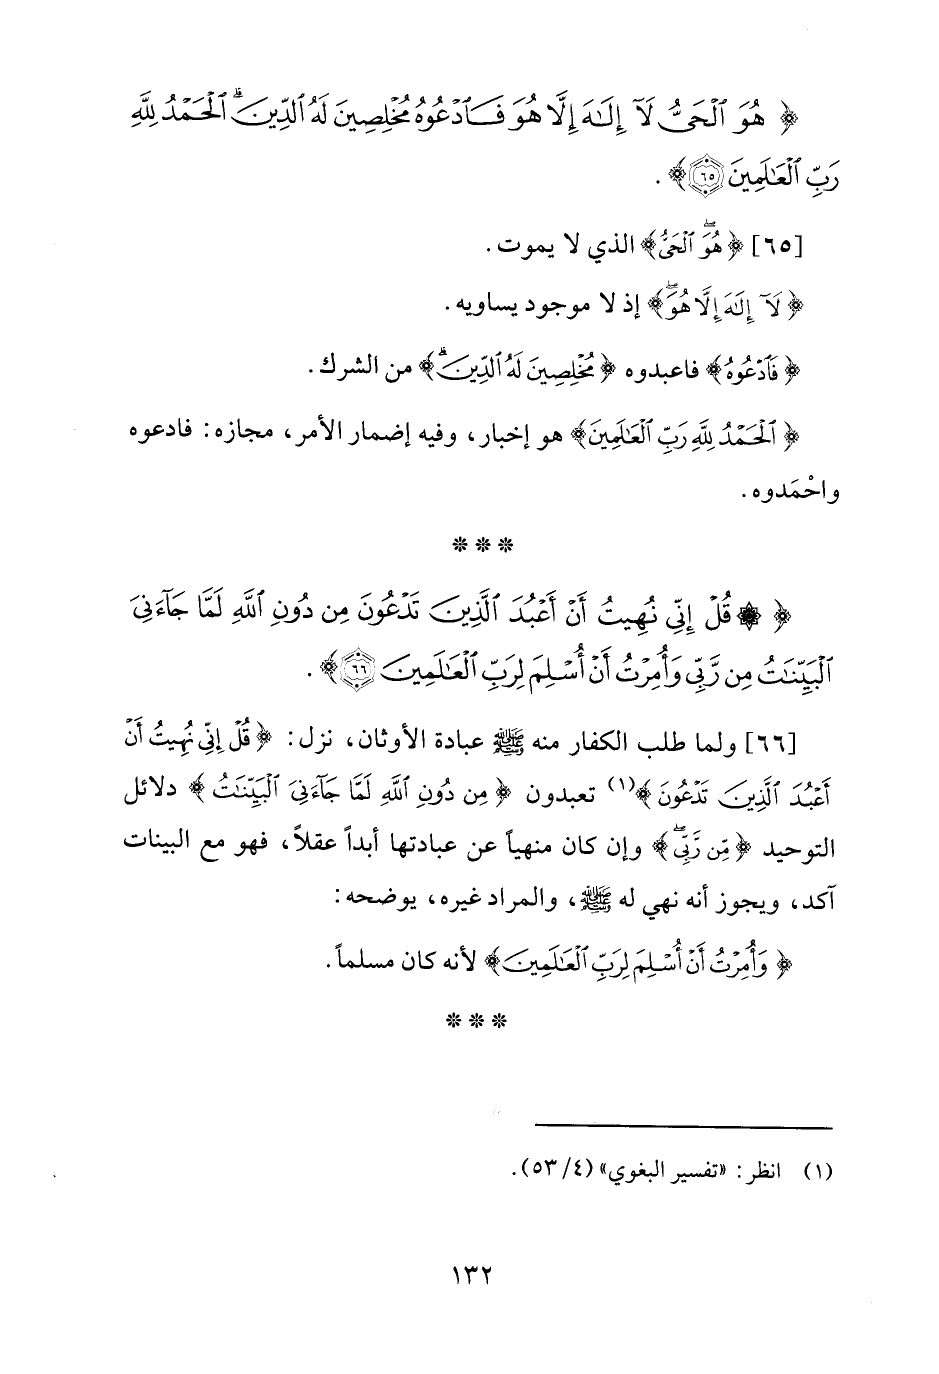 ﴿هُوَ ٱلْحَىُّ لَآ إِلَٰهَ إِلَّا هُوَ فَٱدْعُوهُ مُخْلِصِينَ لَهُ ٱلدِّينَ ۗ ٱلْحَمْدُ لِلَّهِ
رَبِّ ٱلْعَٰلَمِينَ ٦٥﴾ .
[٦٥] ﴿هُوَ ٱلْحَىُّ﴾ الذي لا يموت .
﴿لَآ إِلَٰهَ إِلَّا هُوَ ۖ﴾ إذ لا موجود يساويه .
﴿فَٱدْعُوهُ﴾ فاعبدوه ﴿مُخْلِصِينَ لَهُ ٱلدِّينَ ۗ﴾ من الشرك .
﴿ٱلْحَمْدُ لِلَّهِ رَبِّ ٱلْعَٰلَمِينَ﴾ هو إخبار، وفيه إضمار الأمر، مجازه: فادعوه
واحْمَدوه .
* * *
﴿۞ قُلْ إِنِّى نُهِيتُ أَنْ أَعْبُدَ ٱلَّذِينَ تَدْعُونَ مِن دُونِ ٱللَّهِ لَمَّا جَآءَنِىَ
ٱلْبَيِّنَٰتُ مِن رَّبِّى وَأُمِرْتُ أَنْ أُسْلِمَ لِرَبِّ ٱلْعَٰلَمِينَ ٦٦﴾ .
[٦٦] ولما طلب الكفار منه ﷺ عبادة الأوثان، نزل: ﴿قُلْ إِنِّى نُهِيتُ أَنْ
أَعْبُدَ ٱلَّذِينَ تَدْعُونَ﴾(١) تعبدون ﴿مِن دُونِ ٱللَّهِ لَمَّا جَآءَنِىَ ٱلْبَيِّنَٰتُ﴾ دلائل
التوحيد ﴿مِن رَّبِّى ۖ﴾ وإن كان منهياً عن عبادتها أبداً عقلاً، فهو مع البينات
آكد، ويجوز أنه نهي له ﷺ، والمراد غيره، يوضحه:
﴿وَأُمِرْتُ أَنْ أُسْلِمَ لِرَبِّ ٱلْعَٰلَمِينَ﴾ لأنه كان مسلماً .
* * *
(١) انظر: «تفسير البغوي» (٤/ ٥٣).
١٣٢